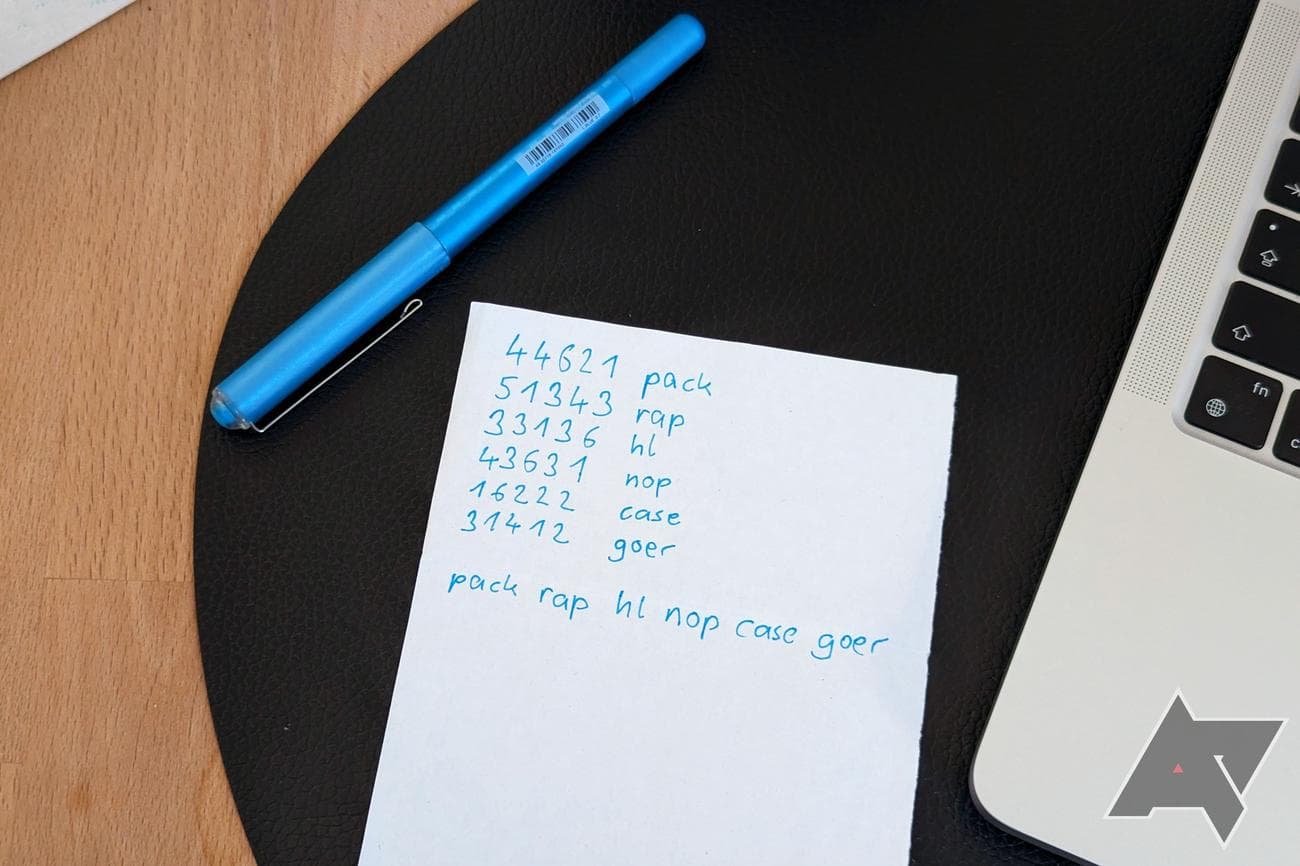 44621 pack
51343 rap
33136 hl
43631 nop
16222 case
31412 goer
pack rap hl nop case goer
fn